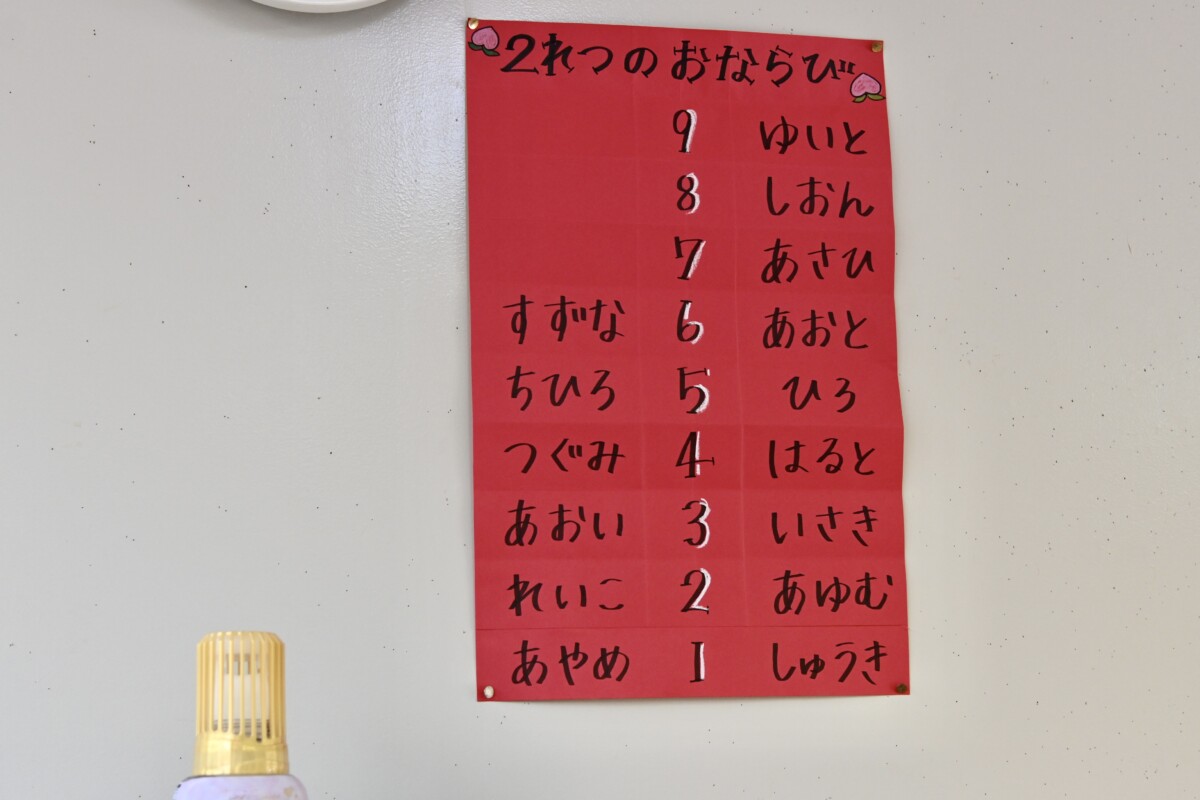 2れつのおならび
9 ゆいと
8 しおん
7 あさひ
すずな 6 あおと
ちひろ 5 ひろ
つぐみ 4 はると
あおい 3 いさき
れいこ 2 あゆむ
あやめ 1 しゅうき